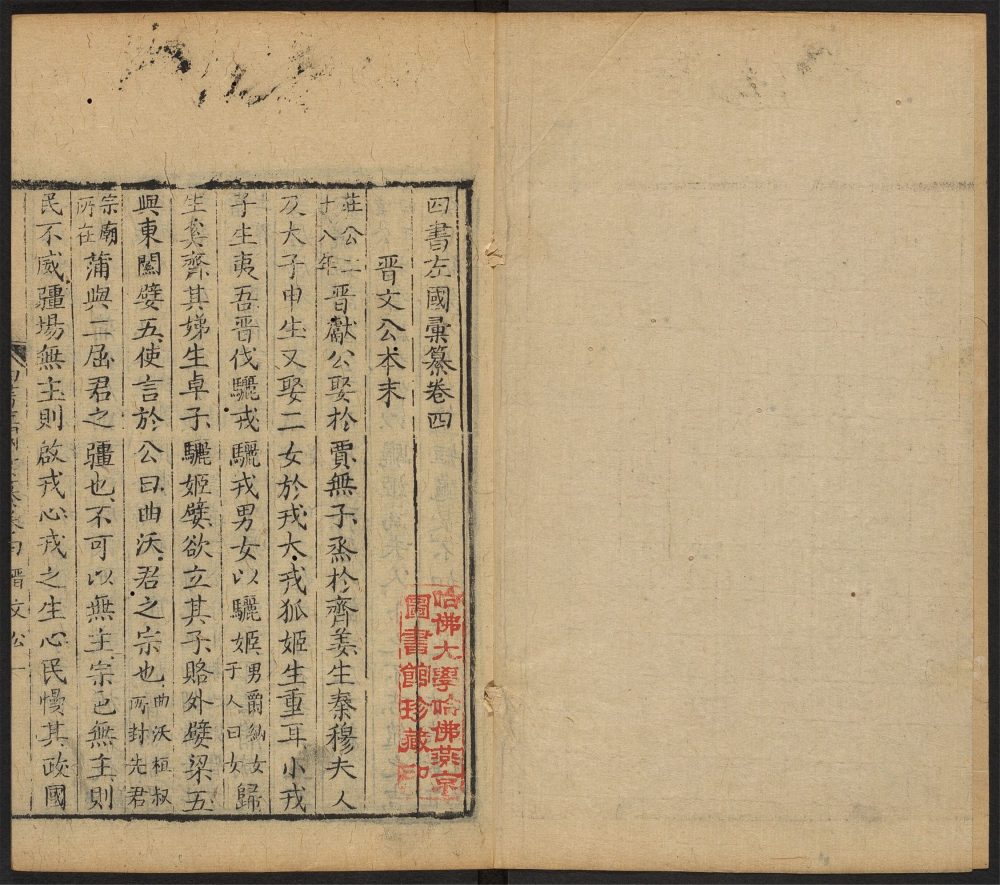 四書左國彙纂卷四
晉文公本末
莊公二十八年晉獻公娶於賈無子烝於齊姜生秦穆夫人
及大子申生又娶二女於戎大戎狐姬生重耳小戎
子生夷吾晉伐驪戎驪戎男女以驪姬男爵納女于人曰女歸
生奚齊其娣生卓子驪姬嬖欲立其子賂外嬖梁五
與東關嬖五使言於公曰曲沃君之宗也曲沃桓叔所封先君
宗廟所在蒲與二屈君之疆也不可以無主宗邑無主則
民不威疆埸無主則啟戎心戎之生心民慢其政國
晉文公 一
哈佛大學哈佛燕京
圖書館珍藏印